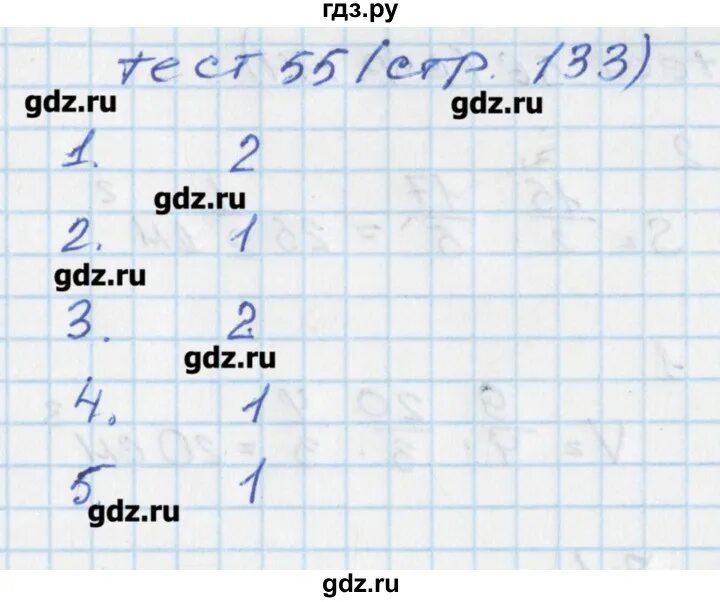 гдз.ру
тест 55 (стр. 133)
gdz.ru
gdz.ru
1. 2
gdz.ru
2. 1
gdz.ru
3. 2
gdz.ru
4. 1
5. 1
gdz.ru
gdz.ru